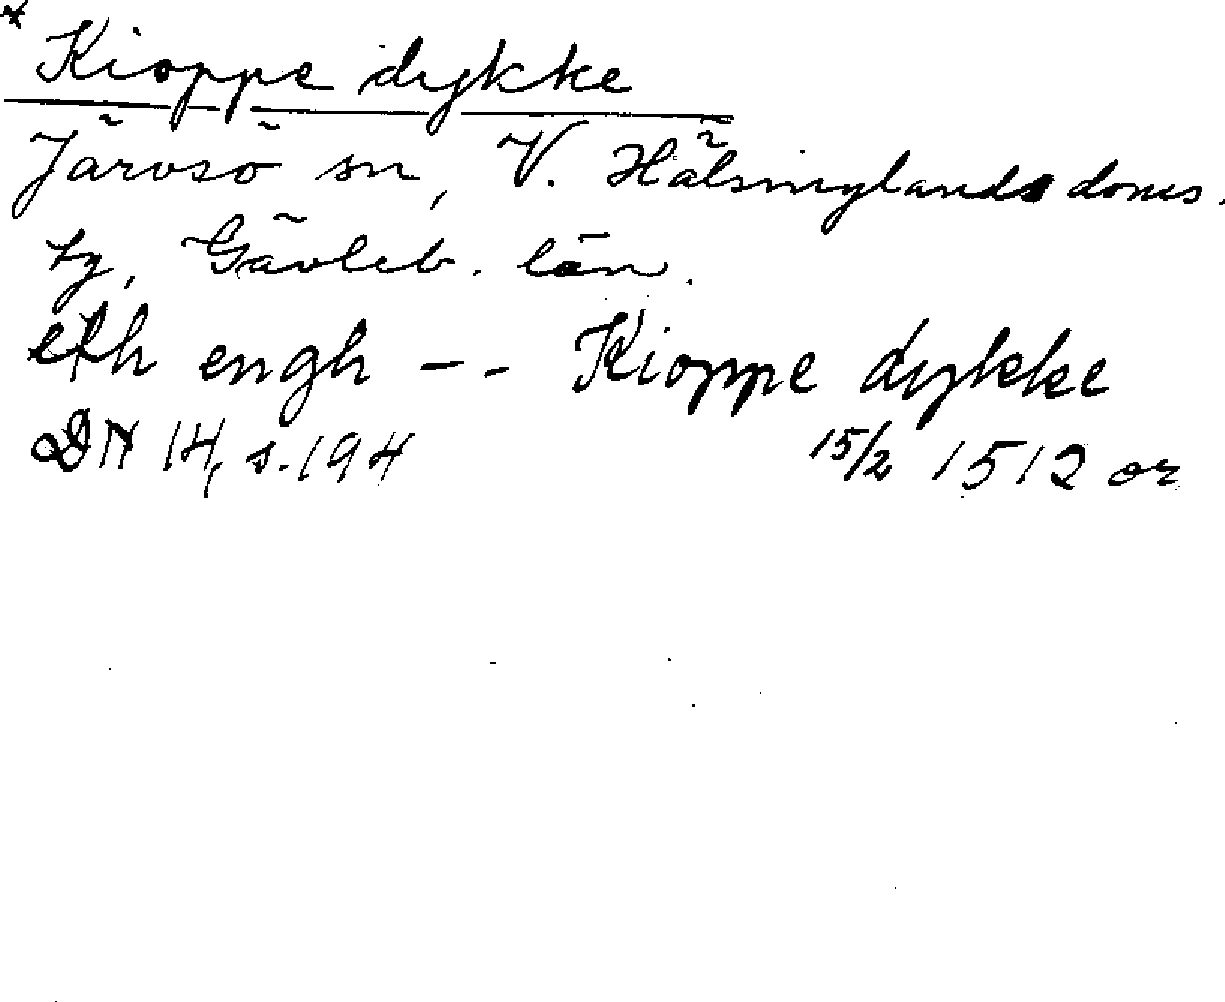 * Kioppe dykke
Järvsö sn, V. Hälsinglands doms.
tg, Gävleb. län.
eth engh -- Kioppe dykke
DN 14, s. 194 15/2 1512 or